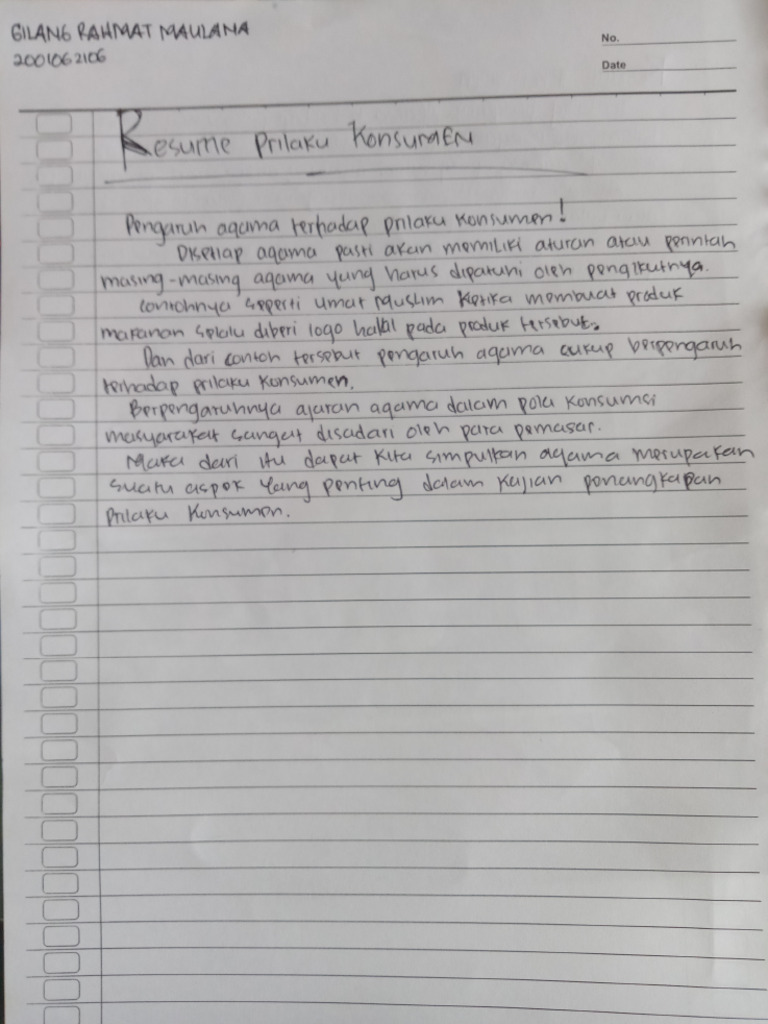 GILANG RAHMAT MAULANA
2001062106
No.
Date
Resume Prilaku Konsumen
Pengaruh agama terhadap prilaku konsumen!
Disetiap agama pasti akan memiliki aturan atau perintah
masing-masing agama yang harus dipatuhi oleh pengikutnya.
Contohnya seperti umat Muslim ketika membuat produk
makanan selalu diberi logo halal pada produk tersebut.
Dan dari contoh tersebut pengaruh agama cukup berpengaruh
terhadap prilaku konsumen.
Berpengaruhnya ajaran agama dalam pola konsumsi
masyarakat sangat disadari oleh para pemasar.
Maka dari itu dapat kita simpulkan agama merupakan
suatu aspek yang penting dalam kajian penangkapan
prilaku konsumen.